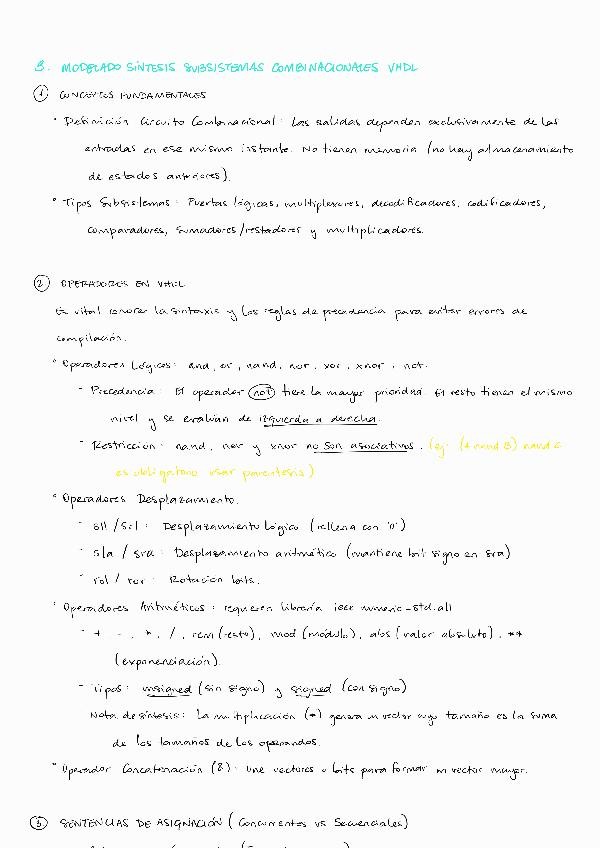 3. MODELADO SÍNTESIS SUBSISTEMAS COMBINACIONALES VHDL
1 CONCEPTOS FUNDAMENTALES
° Definición Circuito Combinacional: Las salidas dependen exclusivamente de las
entradas en ese mismo instante. No tienen memoria (no hay almacenamiento
de estados anteriores).
° Tipos Subsistemas: Puertas lógicas, multiplexores, decodificadores, codificadores,
comparadores, sumadores/restadores y multiplicadores.
2 OPERADORES EN VHDL
Es vital conocer la sintaxis y las reglas de precedencia para evitar errores de
compilación.
° Operadores Lógicos: and, or, nand, nor, xor, xnor, not.
- Precedencia: El operador not tiene la mayor prioridad. El resto tienen el mismo
nivel y se evalúan de izquierda a derecha.
- Restricción: nand, nor y xnor no son asociativos. (ej: (A nand B) nand C
es obligatorio usar parentesis)
° Operadores Desplazamiento.
- sll / srl: Desplazamiento lógico (rellena con '0')
- sla / sra: Desplazamiento aritmético (mantiene bit signo en sra)
- rol / ror: Rotación bits.
° Operadores Aritméticos: requieren librería ieee numeric-std.all
- + -, *, /, rem (resto), mod (módulo), abs (valor absoluto), **
(exponenciación).
- Tipos: unsigned (sin signo) y signed (con signo)
Nota de síntesis: La multiplicación (*) genera un vector cuyo tamaño es la suma
de los tamaños de los operandos.
° Operador Concatenación (&): Une vectores o bits para formar un vector mayor.
3 SENTENCIAS DE ASIGNACIÓN (Concurrentes vs Secuenciales)